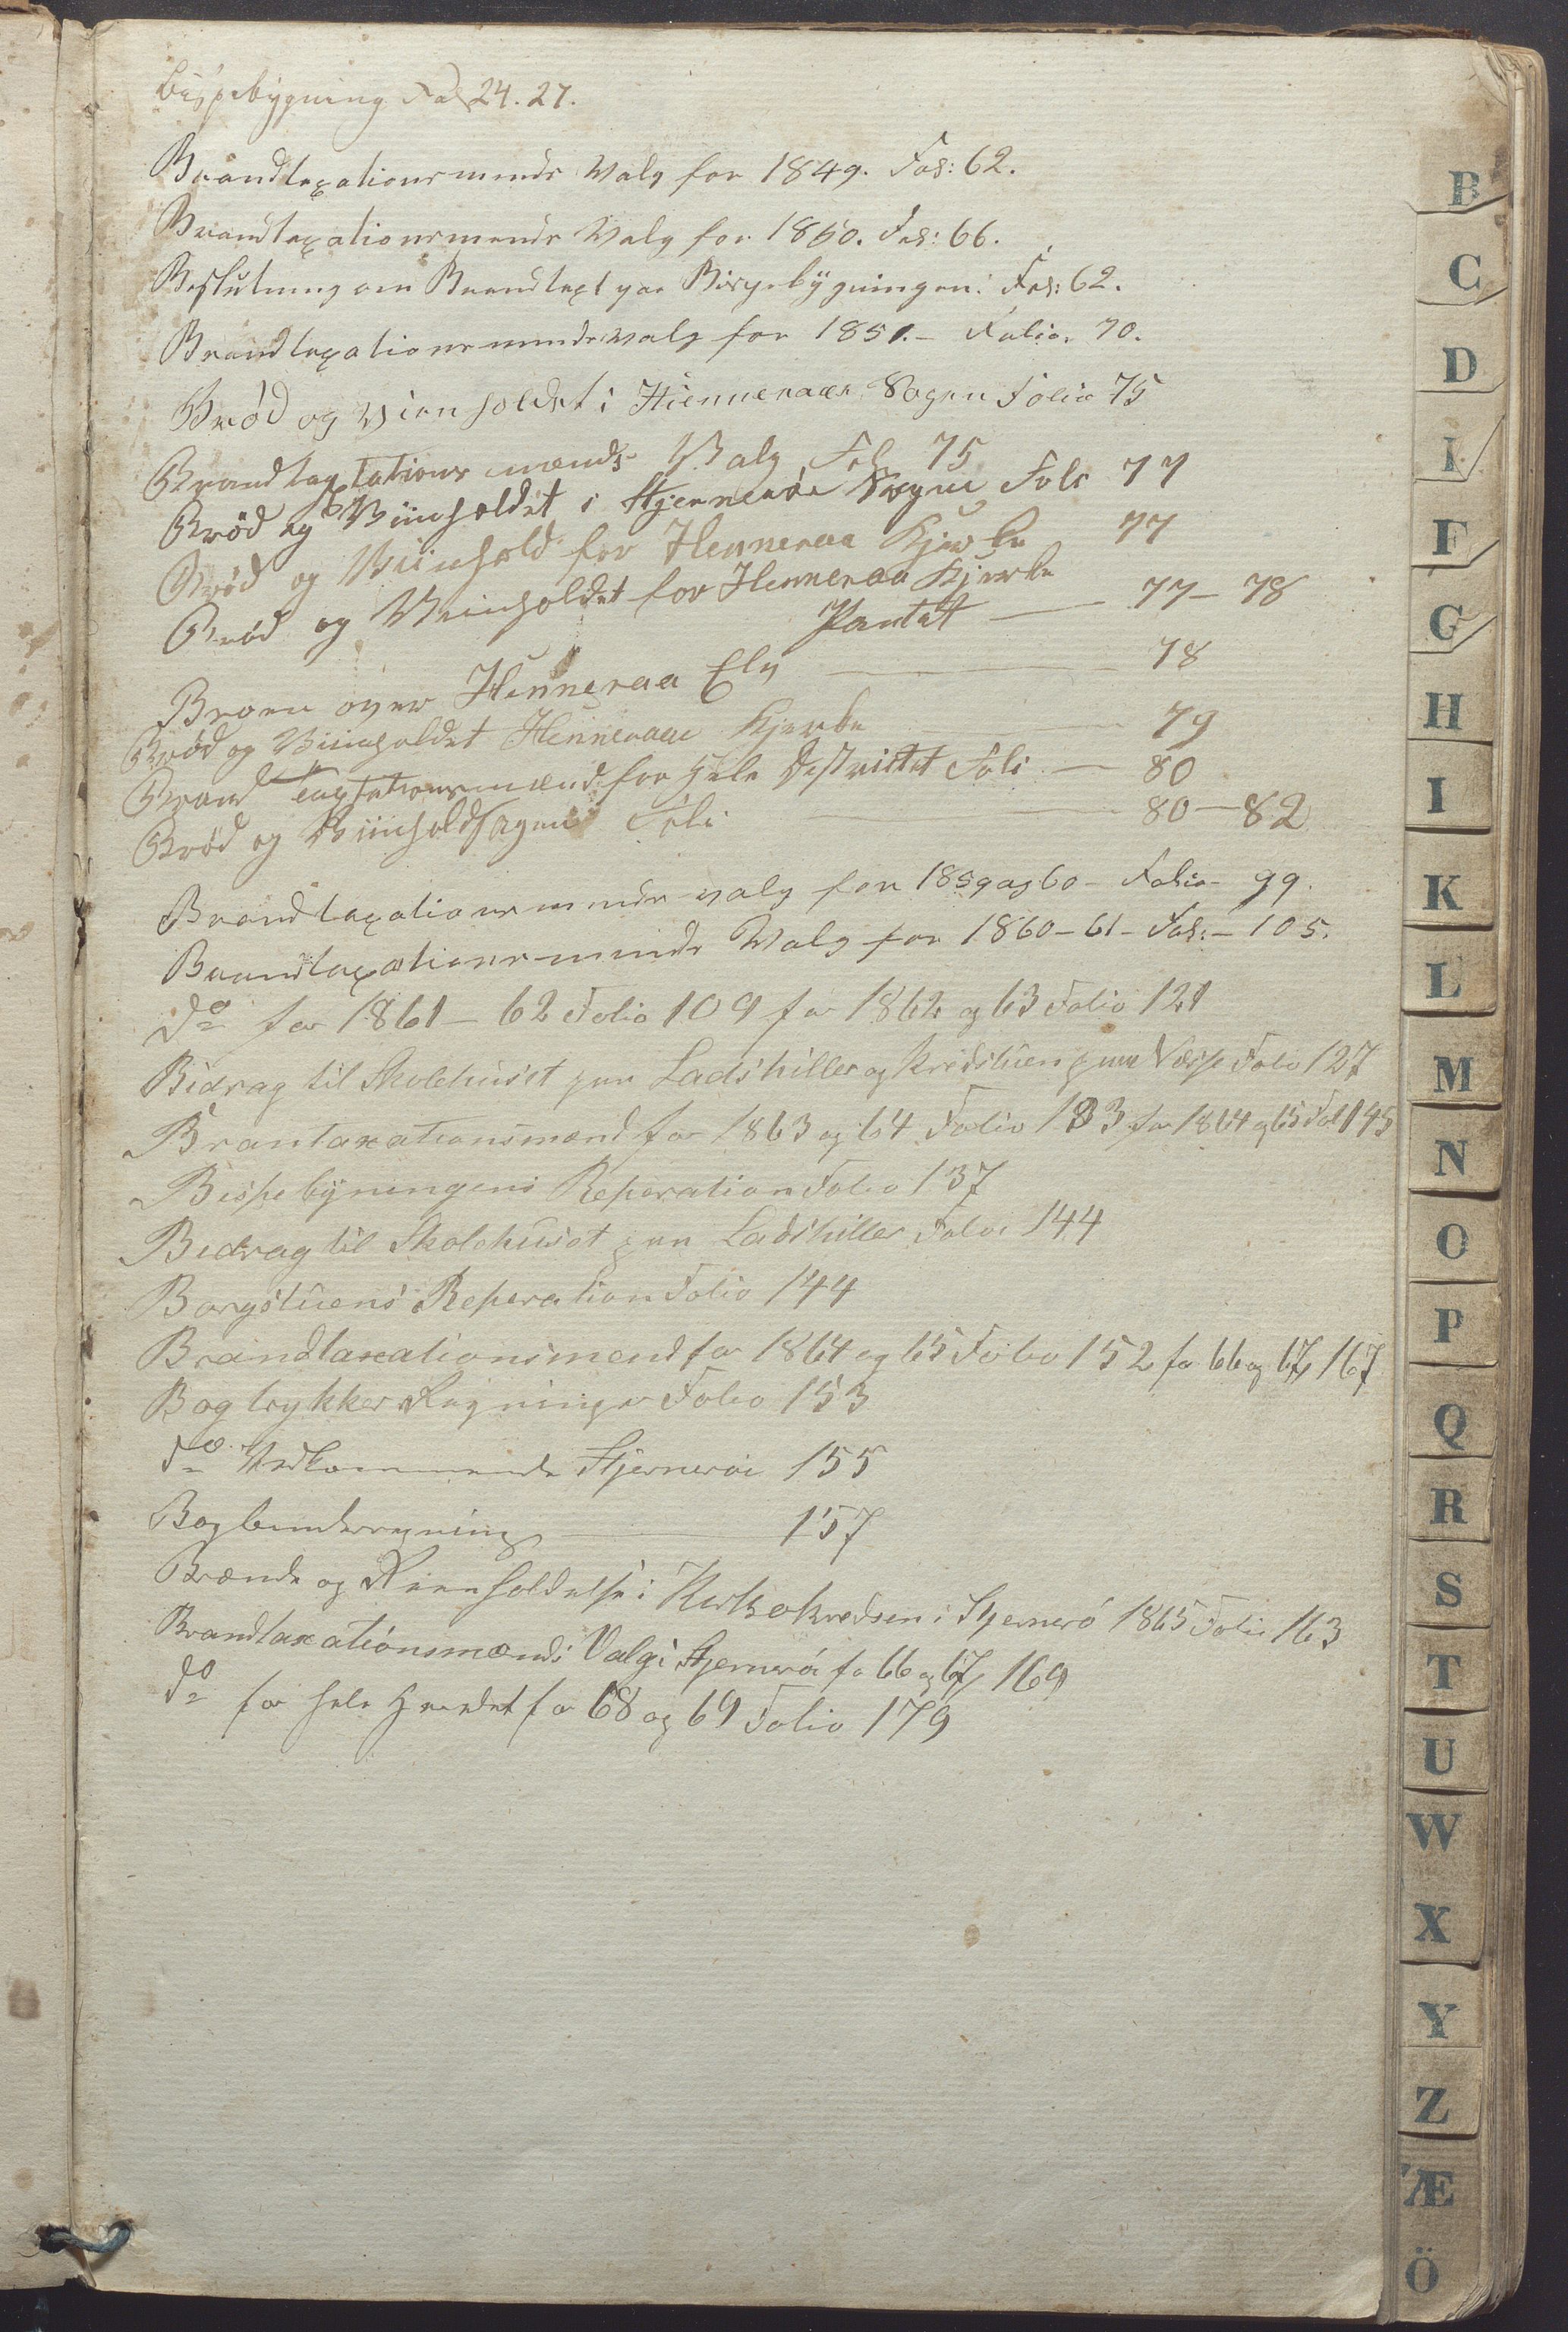 Bispebygning Fol 24. 27.
Brandtaxationsmends Valg for 1849. Fol: 62.
Brandtaxationsmends Valg for 1850. Fol: 66.
Beslutning om Brandtaxt paa Bispebygningen. Fol: 62.
Brandtaxationsmendsvalg for 1851.- Folio. 70.
Brød og Vienholdet i Hienneraae Sogen Folio 75
Brandtagtations mænds Valg Fol 75
Brød og Viinholdet i Hjernerøe Sogne Folo 77
Brød og Viinhold for Henneraa Kjerke 77
Brød og Viinholdet for Henneraa Kjerke
Pantet — 77-78
Broen over Henneraa Elv — 78
Brød og Viinholdet Henneraae Kjerke — 79
Brand Taxtationsmænd for hele Destrictet Foli — 80
Brød og Viinholdsagen Foli — 80-82
Brandtaxationsmends valg for 1859 og 60 - Folio - 99.
Brandtaxationsmends Valg for 1860-61- Fol:- 105.
do for 1861-62 Folio 109 for 1862 og 63 Folio 121
Bidrag til Skolehuset paa Ladshiller og Kredstuen paa Folio 127
Brantaxationsmænd for 1863 og 64 Folio 133 for 1864 og 65 Fol 145
Bispebyningens Reperation Folio 137
Bedrag til Skolehuset paa Ladshiller Folio 144
Borgstuens Reperation Folio 144
Brandtaxationsmend for 1864 og 65 Folio 152 for 66 og 67, 167
Bogtrykker Regninger Folio 153
do Vedkommende Hjernerøi 155
Bogbinderregning — 157
Brænde og Reenholdelse i Kirkekredsen i Hjernerø 1865 Folio 163
Brandtaxationsmænds Valg i Hjernerøi for 66 og 67, 169
do for hele Heredet for 68 og 69 Folio 179
B
C
D
I
F
G
H
I
K
L
M
N
O
P
Q
R
S
T
U
W
X
Y
Z
Æ
Ö